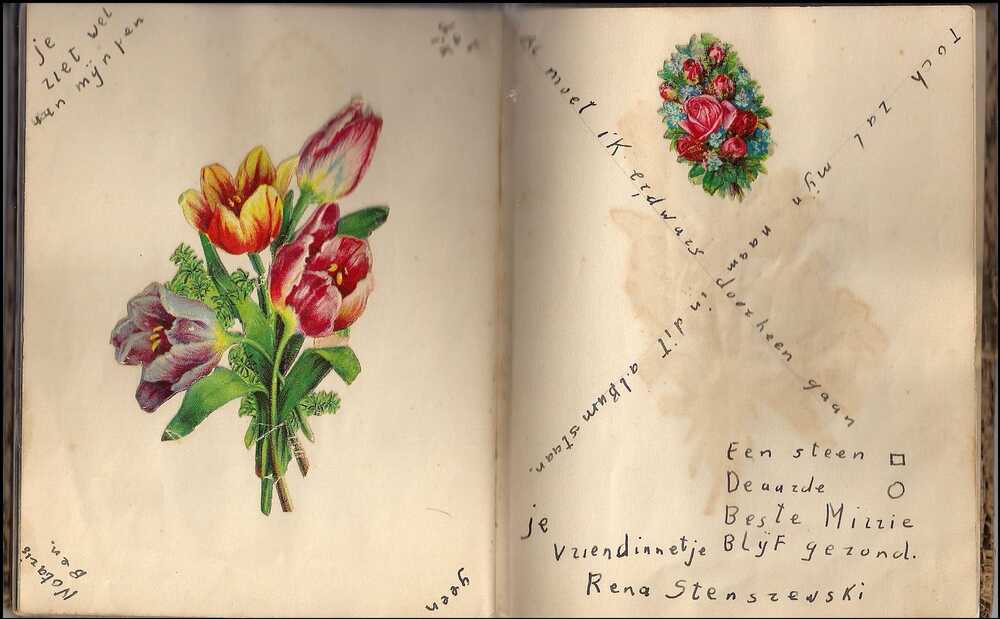 je
ziet wel
aan mijn pen
geen
Notaris
Ben.
Al moet iK er dwars doorheen gaan
Toch zal mijn naam in dit album staan.
Een steen
De aarde
Beste Mirrie
BLijF gezond.
je
vriendinnetje
Rena Stenszewski